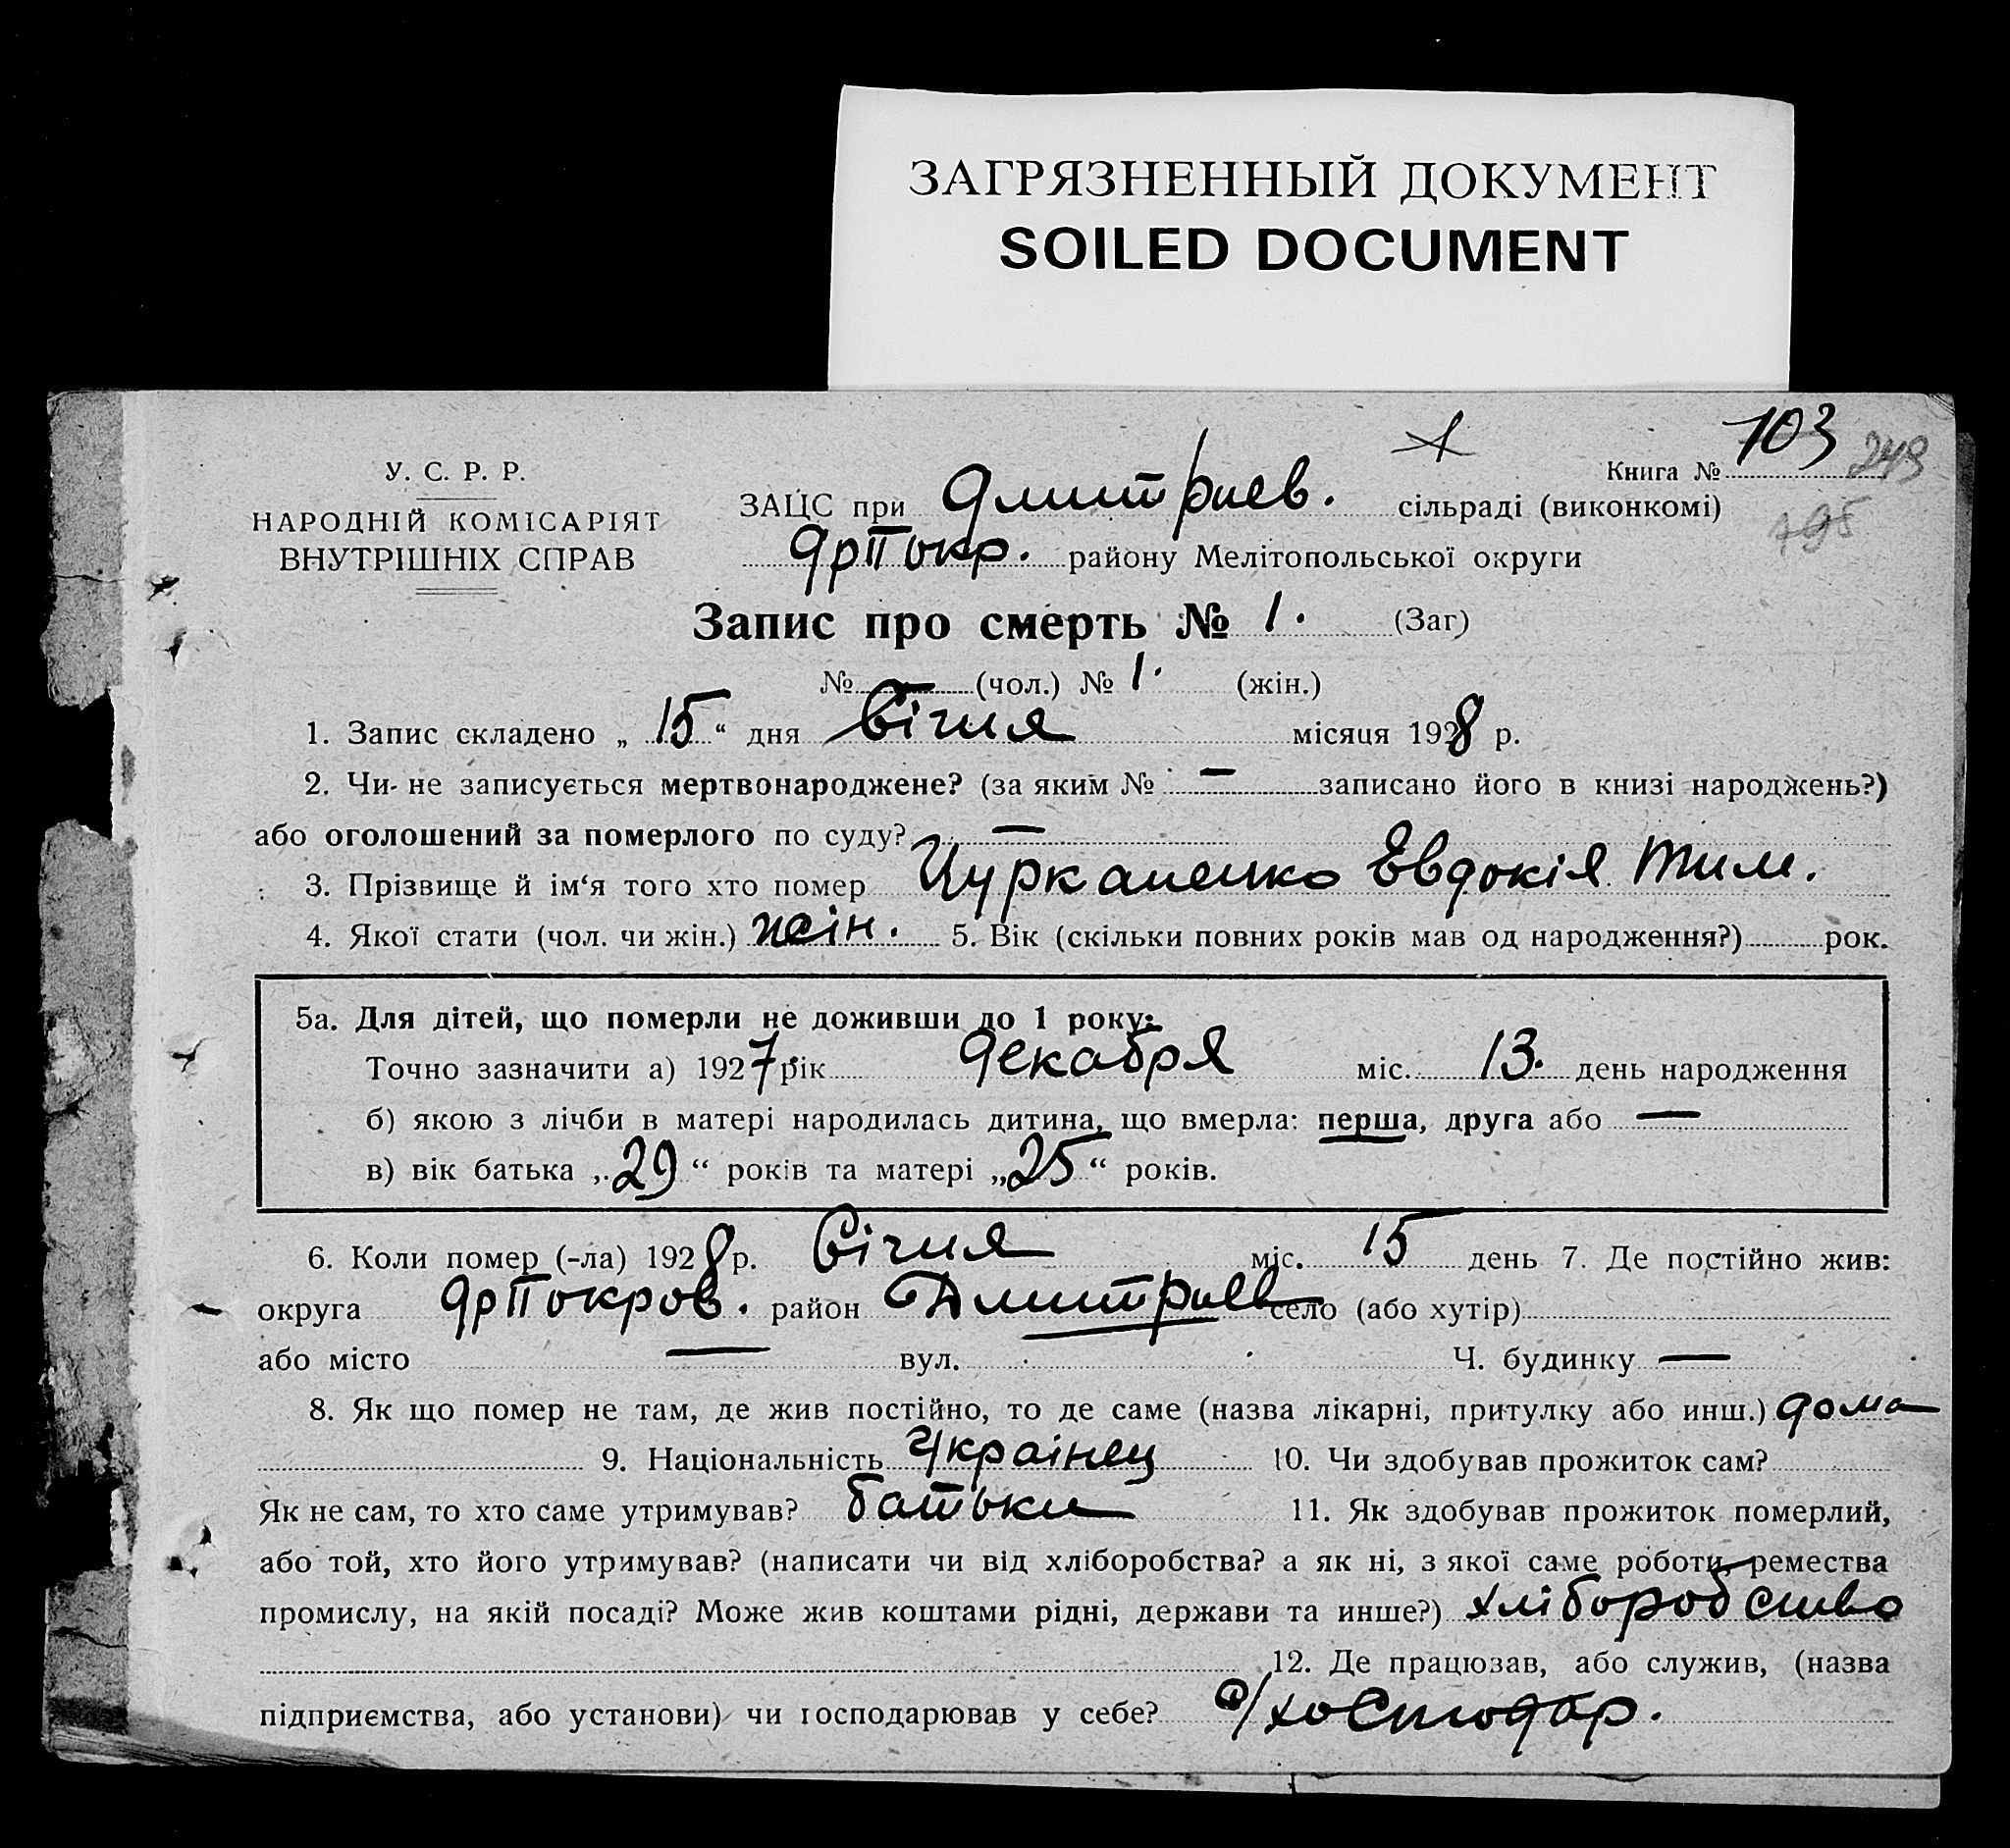 ЗАГРЯЗНЕННЫЙ ДОКУМЕНТ
SOILED DOCUMENT
У. С. Р. Р.
НАРОДНІЙ КОМІСАРІЯТ
ВНУТРІШНІХ СПРАВ
Книга № 103 249
195
ЗАЦС при Дмитриев. сільраді (виконкомі)
др Покр. району Мелітопольської округи
Запис про смерть № 1. (Заг)
№ (чол.) № 1. (жін.)
1. Запис складено „ 15 “ дня Січня місяця 1928 р.
2. Чи не записується мертвонароджене? (за яким № — записано його в книзі народжень?)
або оголошений за померлого по суду? —
3. Прізвище й ім‘я того хто помер Цурканенко Евдокія Тим.
4. Якої стати (чол. чи жін.) жін. 5. Вік (скільки повних років мав од народження?) рок.
5а. Для дітей, що померли не доживши до 1 року:
Точно зазначити а) 1927 рік декабря міс. 13. день народження
б) якою з лічби в матері народилась дитина, що вмерла: перша, друга або —
в) вік батька „ 29 “ років та матері „ 25 “ років.
6. Коли помер (-ла) 1928 р. Січня міс. 15 день 7. Де постійно жив:
округа др Покров. район Дмитриев село (або хутір)
або місто — вул. Ч. будинку —
8. Як що помер не там, де жив постійно, то де саме (назва лікарні, притулку або инш.) дома
9. Національність Украінец 10. Чи здобував прожиток сам?
Як не сам, то хто саме утримував? батьки 11. Як здобував прожиток померлий,
або той, хто його утримував? (написати чи від хліборобства? а як ні, з якої саме роботи, ремества
промислу, на якій посаді? Може жив коштами рідні, держави та инше?) хліборобство
12. Де працював, або служив, (назва
підприємства, або установи) чи господарював у себе? хосподар.